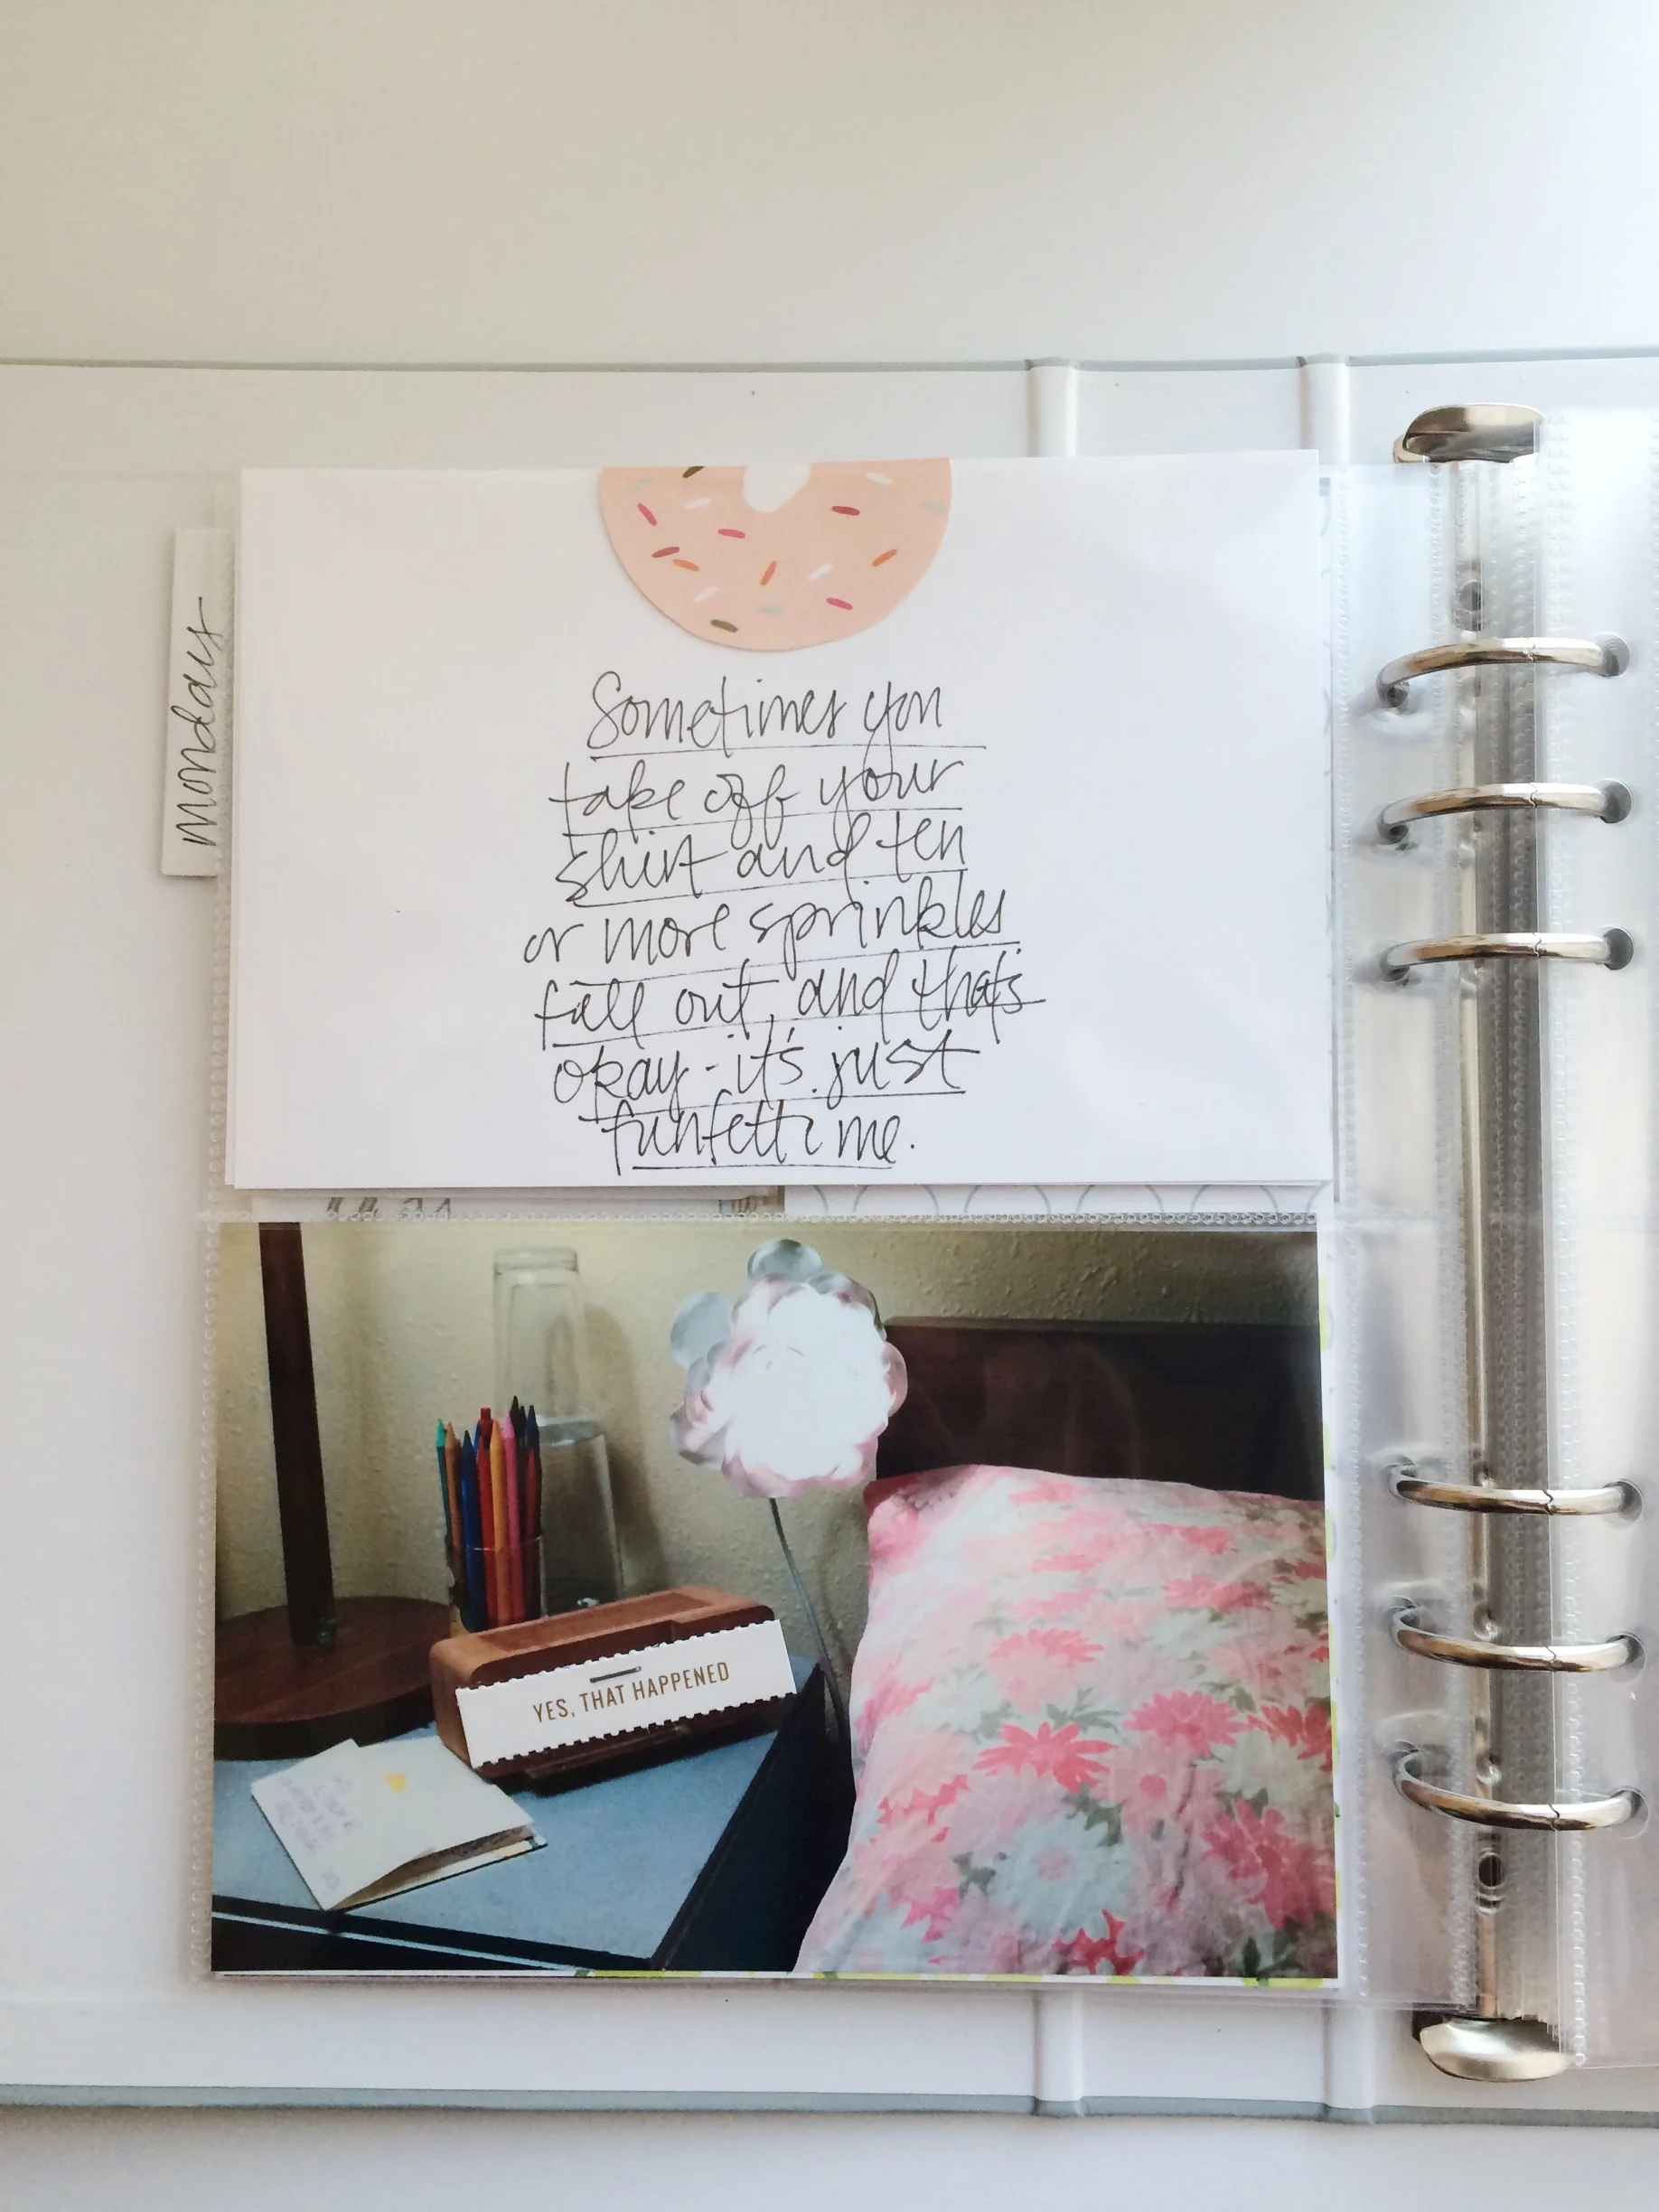 mondays
Sometimes you
take off your
shirt and ten
or more sprinkles
fall out, and thats
okay - it's just
funfetti me.
YES, THAT HAPPENED